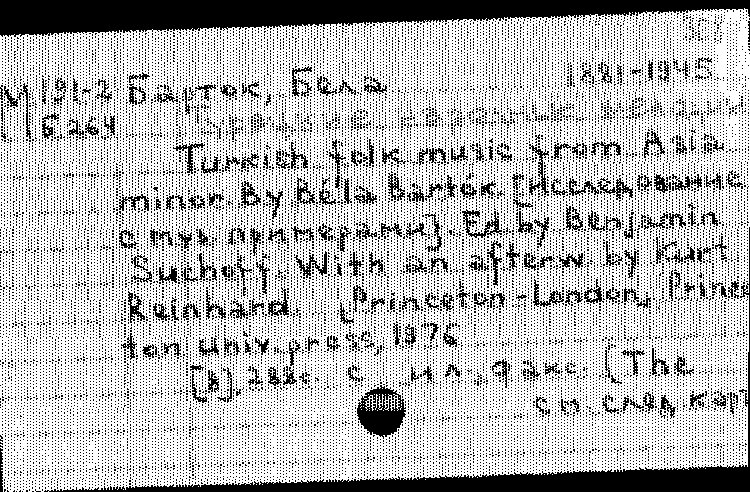 М 191-2 Барток, Бела 1881-1945
Б 264 народные мелодии
Turkich folk music from Asia
minor. By Béla Bartók. [Исследование
с муз. примерами]. Ed by Benjamin
Suchoff. With an afterw. by Kurt
Reinhard. Princeton-London, Prince
ton univ. press, 1976
[8], 288 с. с ил., факс. (The
см. след карт